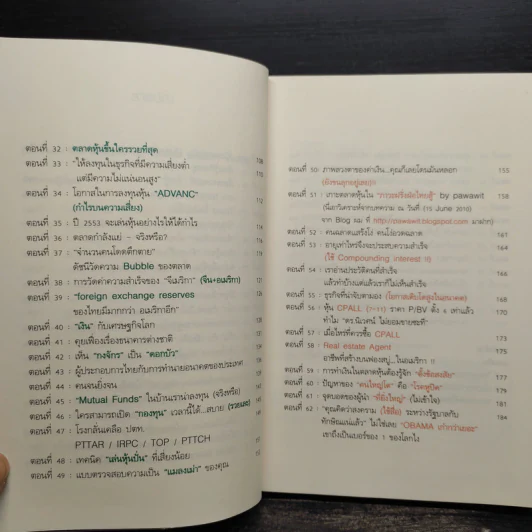 ตอนที่ 32 : ตลาดหุ้นขึ้นใครรวยที่สุด
ตอนที่ 33 : "ให้ลงทุนในธุรกิจที่มีความเสี่ยงต่ำ
แต่มีความไม่แน่นอนสูง"
ตอนที่ 34 : โอกาสในการลงทุนหุ้น "ADVANC"
(กำไรบนความเสี่ยง)
ตอนที่ 35 : ปี 2553 จะเล่นหุ้นอย่างไรให้ได้กำไร
ตอนที่ 36 : ตลาดกำลังแย่ - จริงหรือ?
ตอนที่ 37 : "จำนวนคนโดดตึกตาย"
ดัชนีวัดความ Bubble ของตลาด
ตอนที่ 38 : การวัดค่าความสำเร็จของ "จีเมริกา" (จีน+อเมริกา)
ตอนที่ 39 : "foreign exchange reserves
ของไทยมีมากกว่า อเมริกาอีก"
ตอนที่ 40 : "เงิน" กับเศรษฐกิจโลก
ตอนที่ 41 : คุยเฟื่องเรื่องธนาคารต่างชาติ
ตอนที่ 42 : เห็น "กงจักร" เป็น "ดอกบัว"
ตอนที่ 43 : ผู้ประกอบการไทยกับการทำนายอนาคตของประเทศ
ตอนที่ 44 : คนจนยิ่งจน
ตอนที่ 45 : "Mutual Funds" ในบ้านเราน่าลงทุน (จริงหรือ)
ตอนที่ 46 : ใครสามารถเปิด "กองทุน" เวลานี้ได้...สบาย (รวยเละ)
ตอนที่ 47 : โรงกลั่นเครือ ปตท.
PTTAR / IRPC / TOP / PTTCH
ตอนที่ 48 : เทคนิค "เล่นหุ้นปั่น" ที่เสี่ยงน้อย
ตอนที่ 49 : แบบตรวจสอบความเป็น "แมลงเม่า" ของคุณ
ตอนที่ 50: ภาพลวงตาของค่าเงิน...คุณก็เคยโดนมันหลอก 155
ตอนที่ 51 : เกาะตลาดหุ้นใน by pawawit 158
(นี่เอาวิเคราะห์จากบทความ ณ วันที่ (15 June 2010)
จาก Blog ผม ที่ http://pawawit.blogspot.com มาฝาก)
ตอนที่ 52 : คนฉลาดแสร้งโง่ คนโง่อวดฉลาด 161
ตอนที่ 53 : อายุเท่าไหร่จึงจะประสบความสำเร็จ 163
(ใช้ Compounding interest !!)
ตอนที่ 54 : เราอ่านประวัติคนที่สำเร็จ
แล้วทำบ้างแต่แล้วเราก็ไม่เห็นสำเร็จ
ตอนที่ 55 : ธุรกิจที่น่าจับตามอง (โอกาสเติบโตสูงในอนาคต)
ตอนที่ 56 : หุ้น CPALL (7-11) ราคา P/BV ตั้ง 6 เท่าแล้ว
ทำไม "ดร.นิเวศน์ ไม่ยอมขายซะที"
ตอนที่ 57 : เมื่อไหร่ที่ควรซื้อ CPALL 173
ตอนที่ 58 : Real estate Agent 175
อาชีพที่สร้างบนฟองสบู่...ในอเมริกา !!
ตอนที่ 59 : การทำเงินในตลาดหุ้นต้องรู้จัก "ตั้งข้อสงสัย" 177
ตอนที่ 60 : ปัญหาของ "คนใหญ่โต" คือ "โรคหูปิด"
ตอนที่ 61 : จุดบอดของผู้นำ "ที่ยิ่งใหญ่" (ไม่เข้าใจ)
ตอนที่ 62 : "คุณคิดว่าสงคราม (ใช้สื่อ) ระหว่างรัฐบาลกับ
ทักษิณแน่แล้ว" ไม่ใช่เลย "OBAMA เก๋ากว่าเยอะ"
เขาถึงเป็นเบอร์ของ 1 ของโลกไง